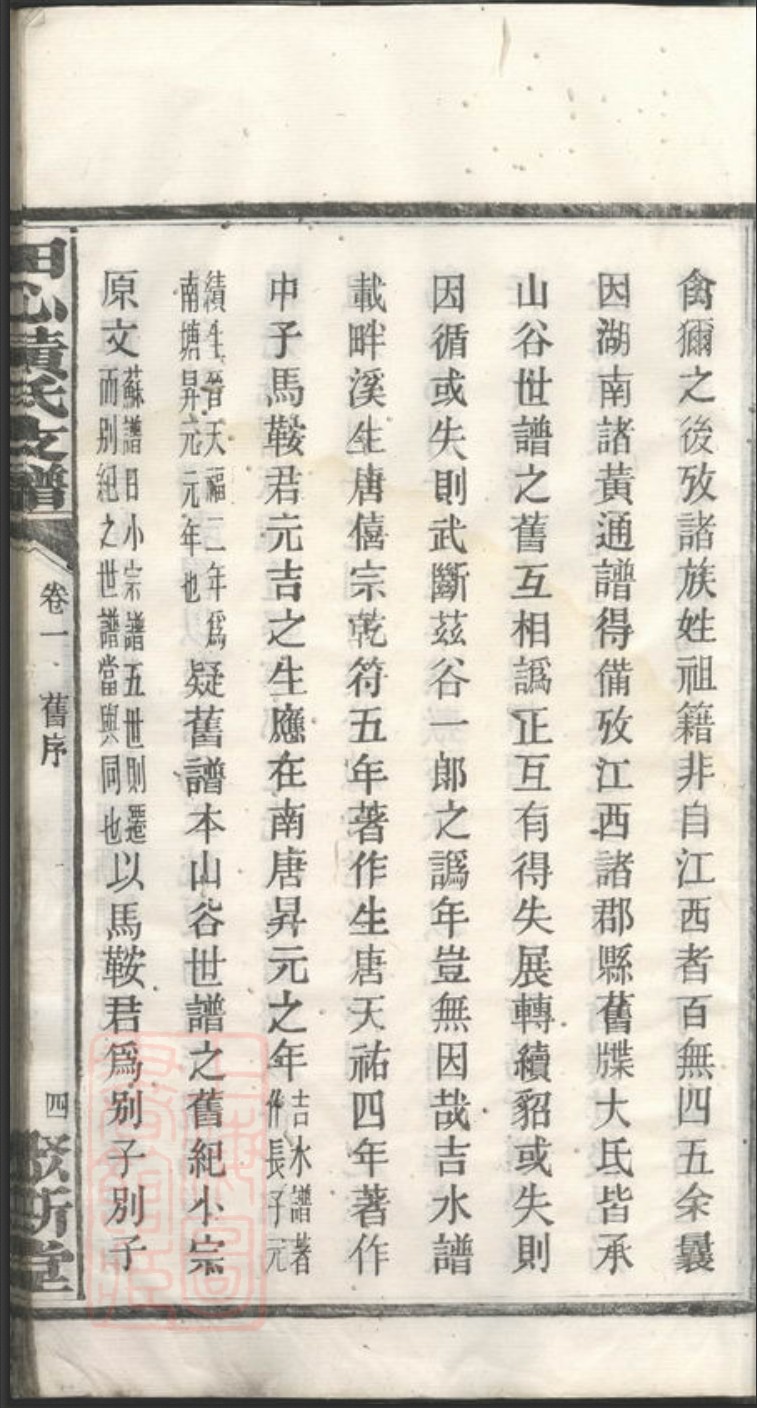 禽獮之後攷諸族姓祖籍非自江西者百無四五余曩
因湖南諸黃通譜得備攷江西諸郡縣舊牒大氐皆承
山谷世譜之舊互相譌正互有得失展轉續貂或失則
因循或失則武斷茲谷一郞之譌年豈無因哉吉水譜
載畔溪生唐僖宗乾符五年著作生唐天祐四年著作
中子馬鞍君元吉之生應在南唐昇元之年吉水譜著作長子元
績生晉天福二年爲南塘昇元元年也疑舊譜本山谷世譜之舊紀小宗
原文蘇譜曰小宗譜五世則遷而別紀之世譜當與同也以馬鞍君爲別子別子
田心黃氏支譜
卷一
舊序
四
敦所堂